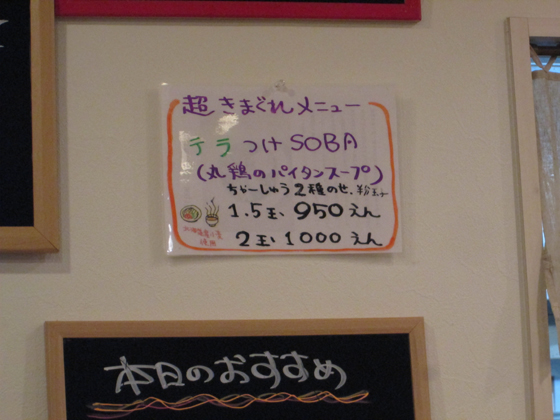 超きまぐれメニュー
テラつけSOBA
(丸鶏のパイタンスープ)
ちゃーしゅう2種のせ、粉玉子
1.5玉、950えん
2玉、1000えん
使用
本日のおすすめ